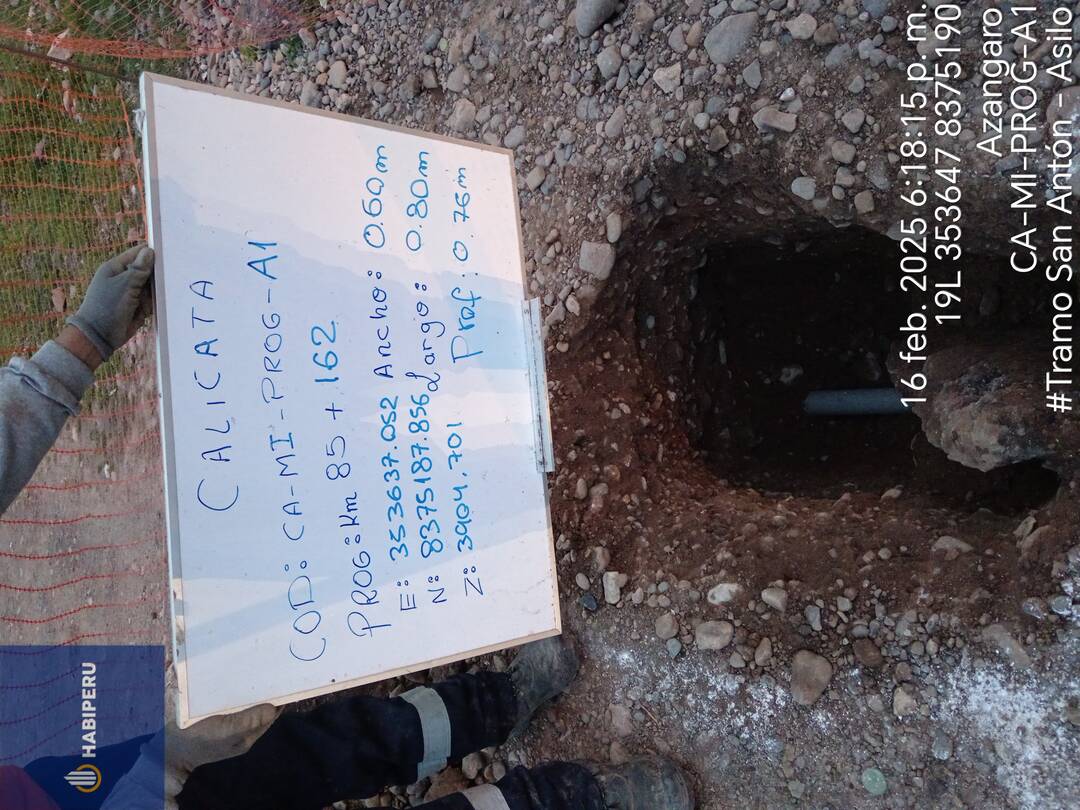 HABIPERU
CALICATA
COD: CA-MI-PROG-A1
PROG: Km 85 + 162
E: 353637.052 Ancho: 0.60m
N: 8375187.856 Largo: 0.80m
Z: 3904.701 Prof: 0.76m
16 feb. 2025 6:18:15 p. m.
19L 353647 8375190
Azangaro
CA-MI-PROG-A1
#Tramo San Antón - Asilo